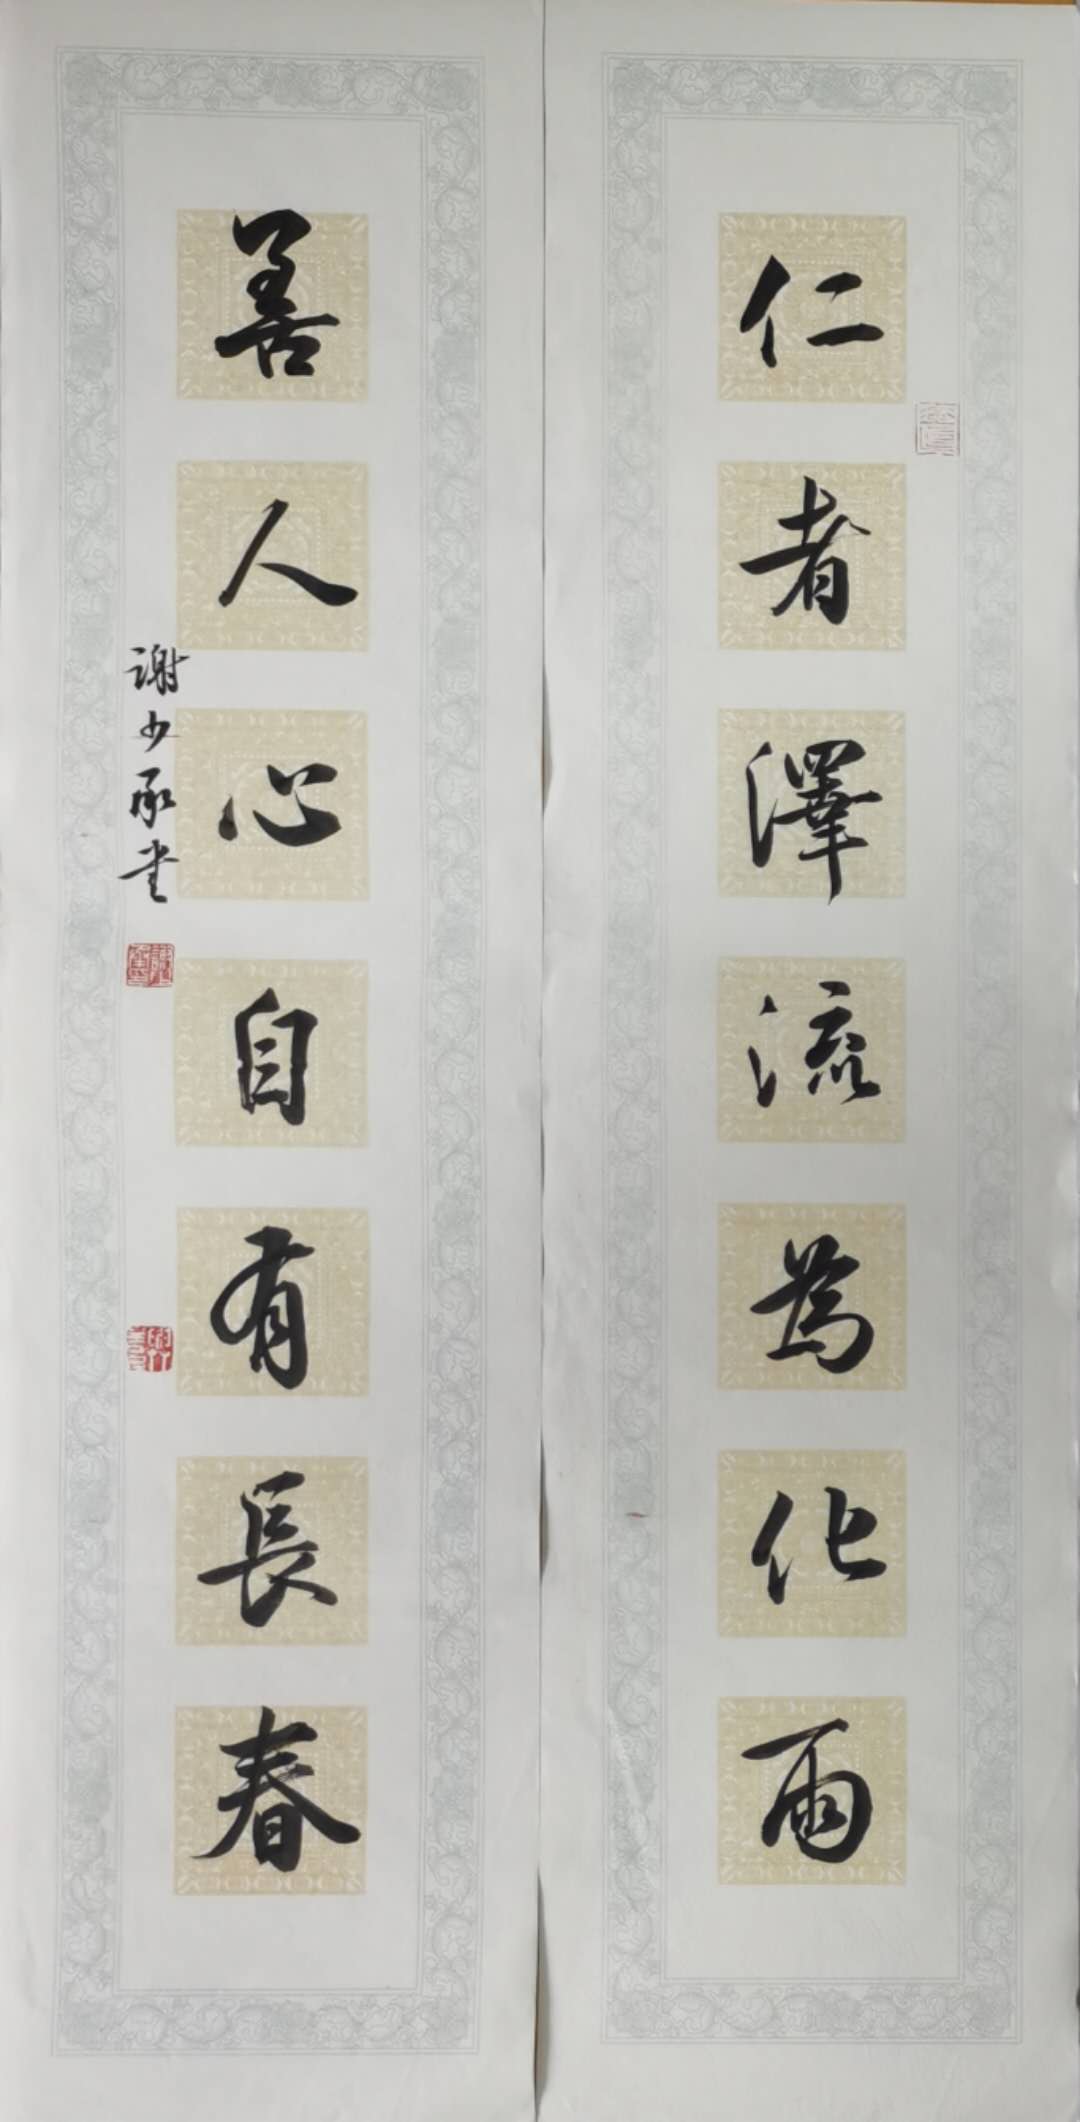 仁者澤流為化雨
善人心自有長春
謝少承書